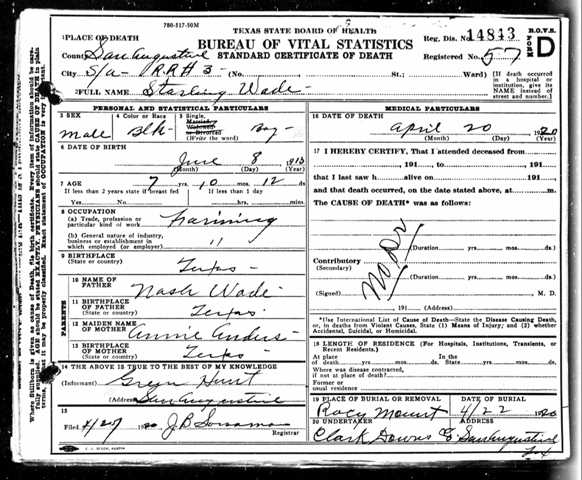 780-317-50M
TEXAS STATE BOARD OF HEALTH
BUREAU OF VITAL STATISTICS
STANDARD CERTIFICATE OF DEATH
Reg. Dis. No. 14843
Registered No. 57
B.O.V.S. FORM D
1 PLACE OF DEATH
County San Augustine
City S/a - R.R # 3 - (No. St.; Ward)
[If death occurred in a hospital or institution, give its NAME instead of street and number.]
2 FULL NAME Starling Wade -
PERSONAL AND STATISTICAL PARTICULARS
3 SEX
Male
4 Color or Race
Blk-
5 Single, Married, Widowed, or Divorced (Write the word)
Boy -
6 DATE OF BIRTH
June 8 1913
(Month) (Day) (Year)
7 AGE 7 yrs. 10 mos. 12 ds.
If less than 2 years state if breast fed
If less than 1 day
Yes No hrs. min.
8 OCCUPATION
(a) Trade, profession or particular kind of work Farming
(b) General nature of industry, business or establishment in which employed (or employer) "
9 BIRTHPLACE
(State or country) Texas -
PARENTS
10 NAME OF FATHER Nash Wade -
11 BIRTHPLACE OF FATHER
(State or country) Texas -
12 MAIDEN NAME OF MOTHER Annie Anders -
13 BIRTHPLACE OF MOTHER
(State or country) Texas -
14 THE ABOVE IS TRUE TO THE BEST OF MY KNOWLEDGE
(Informant) Hunt
(Address) San Augustine
15
Filed 4/27 1920 J.B.
Registrar
MEDICAL PARTICULARS
16 DATE OF DEATH
April 20 1920
(Month) (Day) (Year)
17 I HEREBY CERTIFY, That I attended deceased from
191 to 191
that I last saw h alive on 191
and that death occurred, on the date stated above, at m.
The CAUSE OF DEATH* was as follows:
No Dr
(Duration yrs. mos. ds.)
Contributory
(Secondary)
(Duration yrs. mos. ds.)
(Signed) M. D.
191 (Address)
*Use International List of Cause of Death—State the Disease Causing Death, or, in deaths from Violent Causes, State (1) Means of Injury; and (2) whether Accidental, Suicidal, or Homicidal.
18 LENGTH OF RESIDENCE (For Hospitals, Institutions, Transients, or Recent Residents.)
At place of death yrs. mos. ds.
In the State yrs. mos. ds.
Where was disease contracted, if not at place of death?
Former or usual residence
19 PLACE OF BURIAL OR REMOVAL
Rocy Mount
DATE OF BURIAL
4/22 1920
20 UNDERTAKER
Clark Downs Co San Augustine
Tx